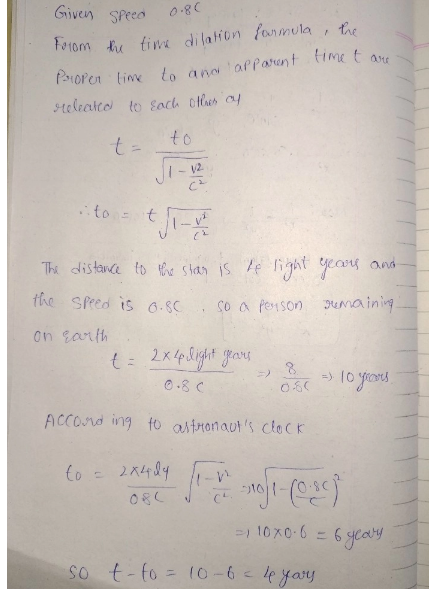 Given Speed 0.8C
From the time dilation formula, the
Proper time to and apparent time t are
releated to each other of
t = to / √(1 - v²/c²)
∴ to = t √(1 - v²/c²)
The distance to the star is 4 light years and
the speed is 0.8C . so a person remaining
on earth
t = 2x4 light years / 0.8c => 8 / 0.8C => 10 years
According to astronaut's clock
to = 2x4ly / 0.8C √(1 - v²/c²) => 10 √(1 - (0.8C/c)²)
=> 10 x 0.6 = 6 years
so t - to = 10 - 6 = 4 years